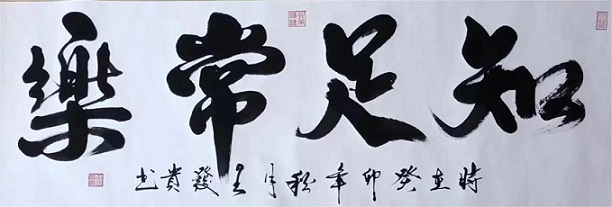 知足常樂
時在癸卯年秋月王發貴书